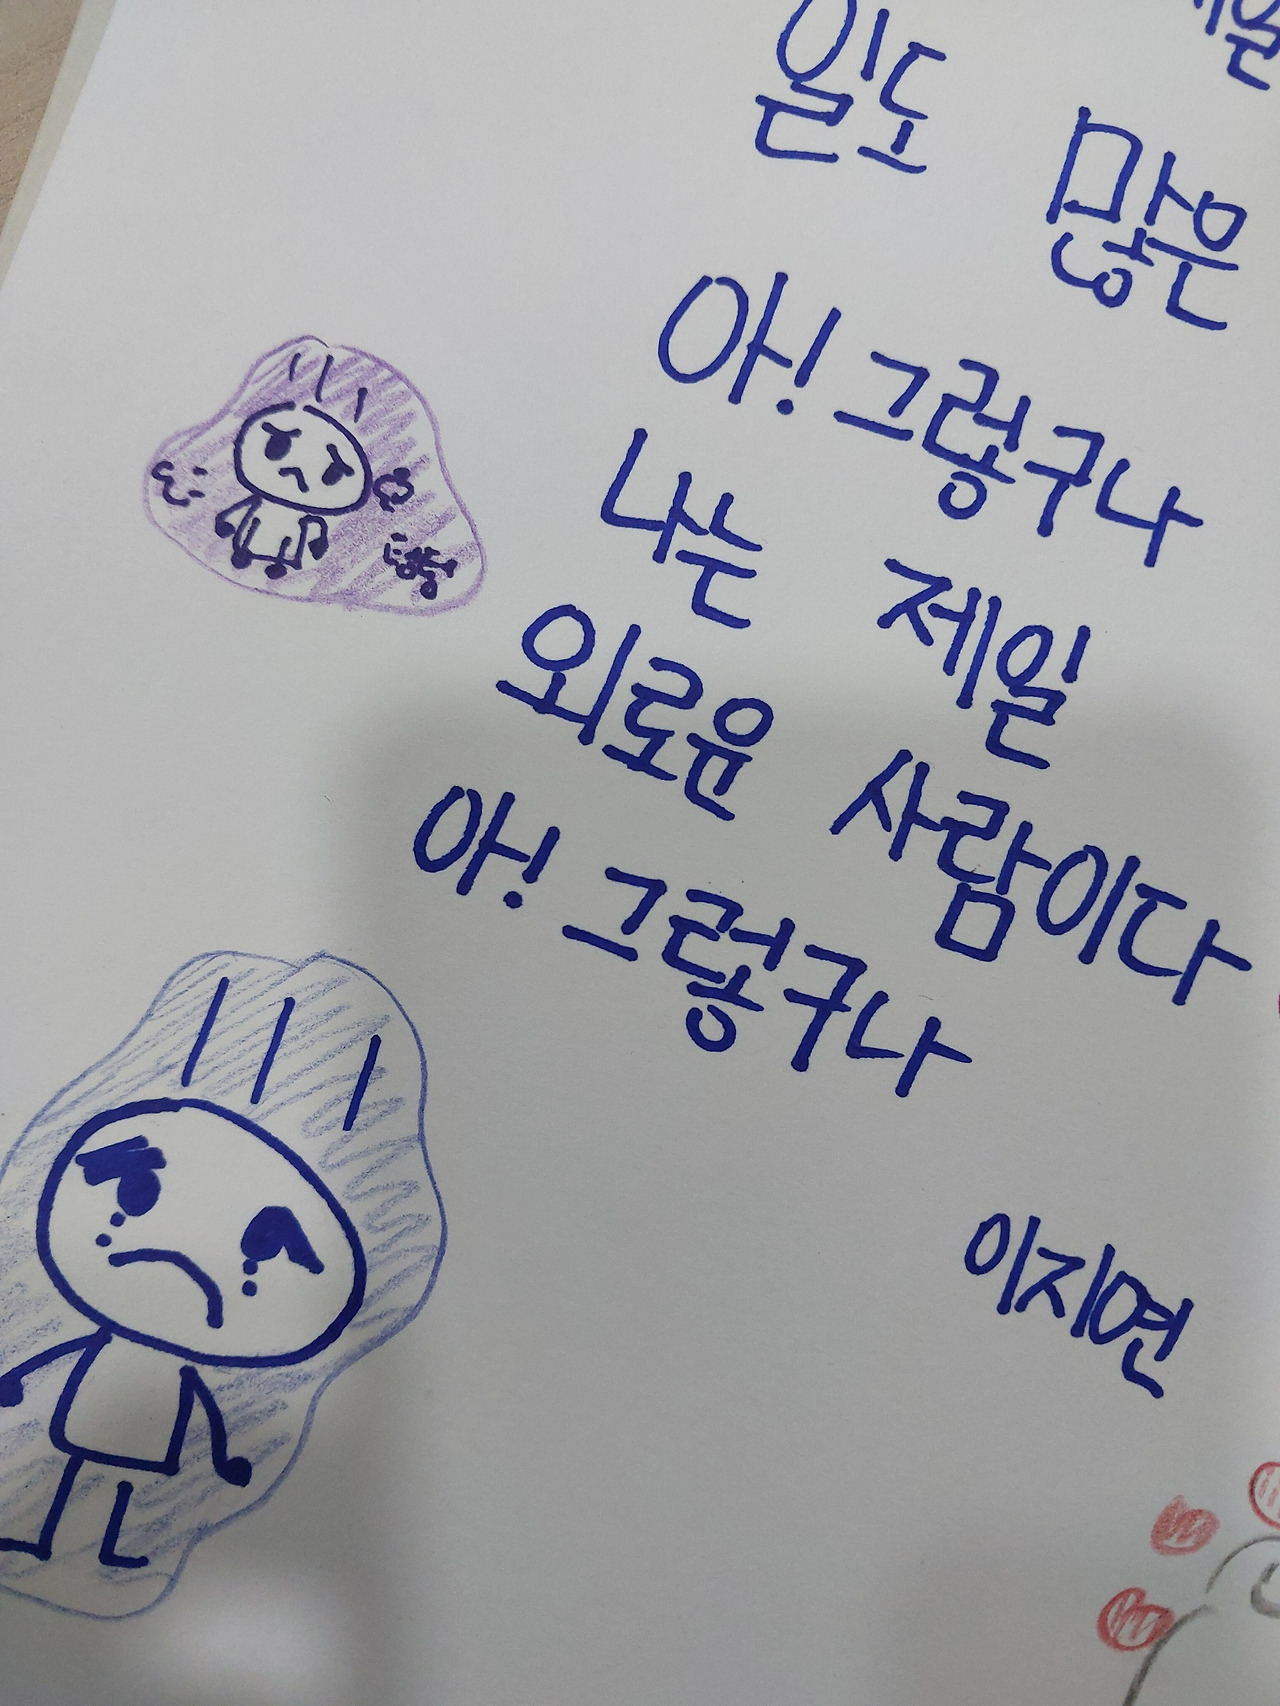 일도 많은
아! 그렇구나
나는 제일
외로운 사람이다
아! 그렇구나
이지연